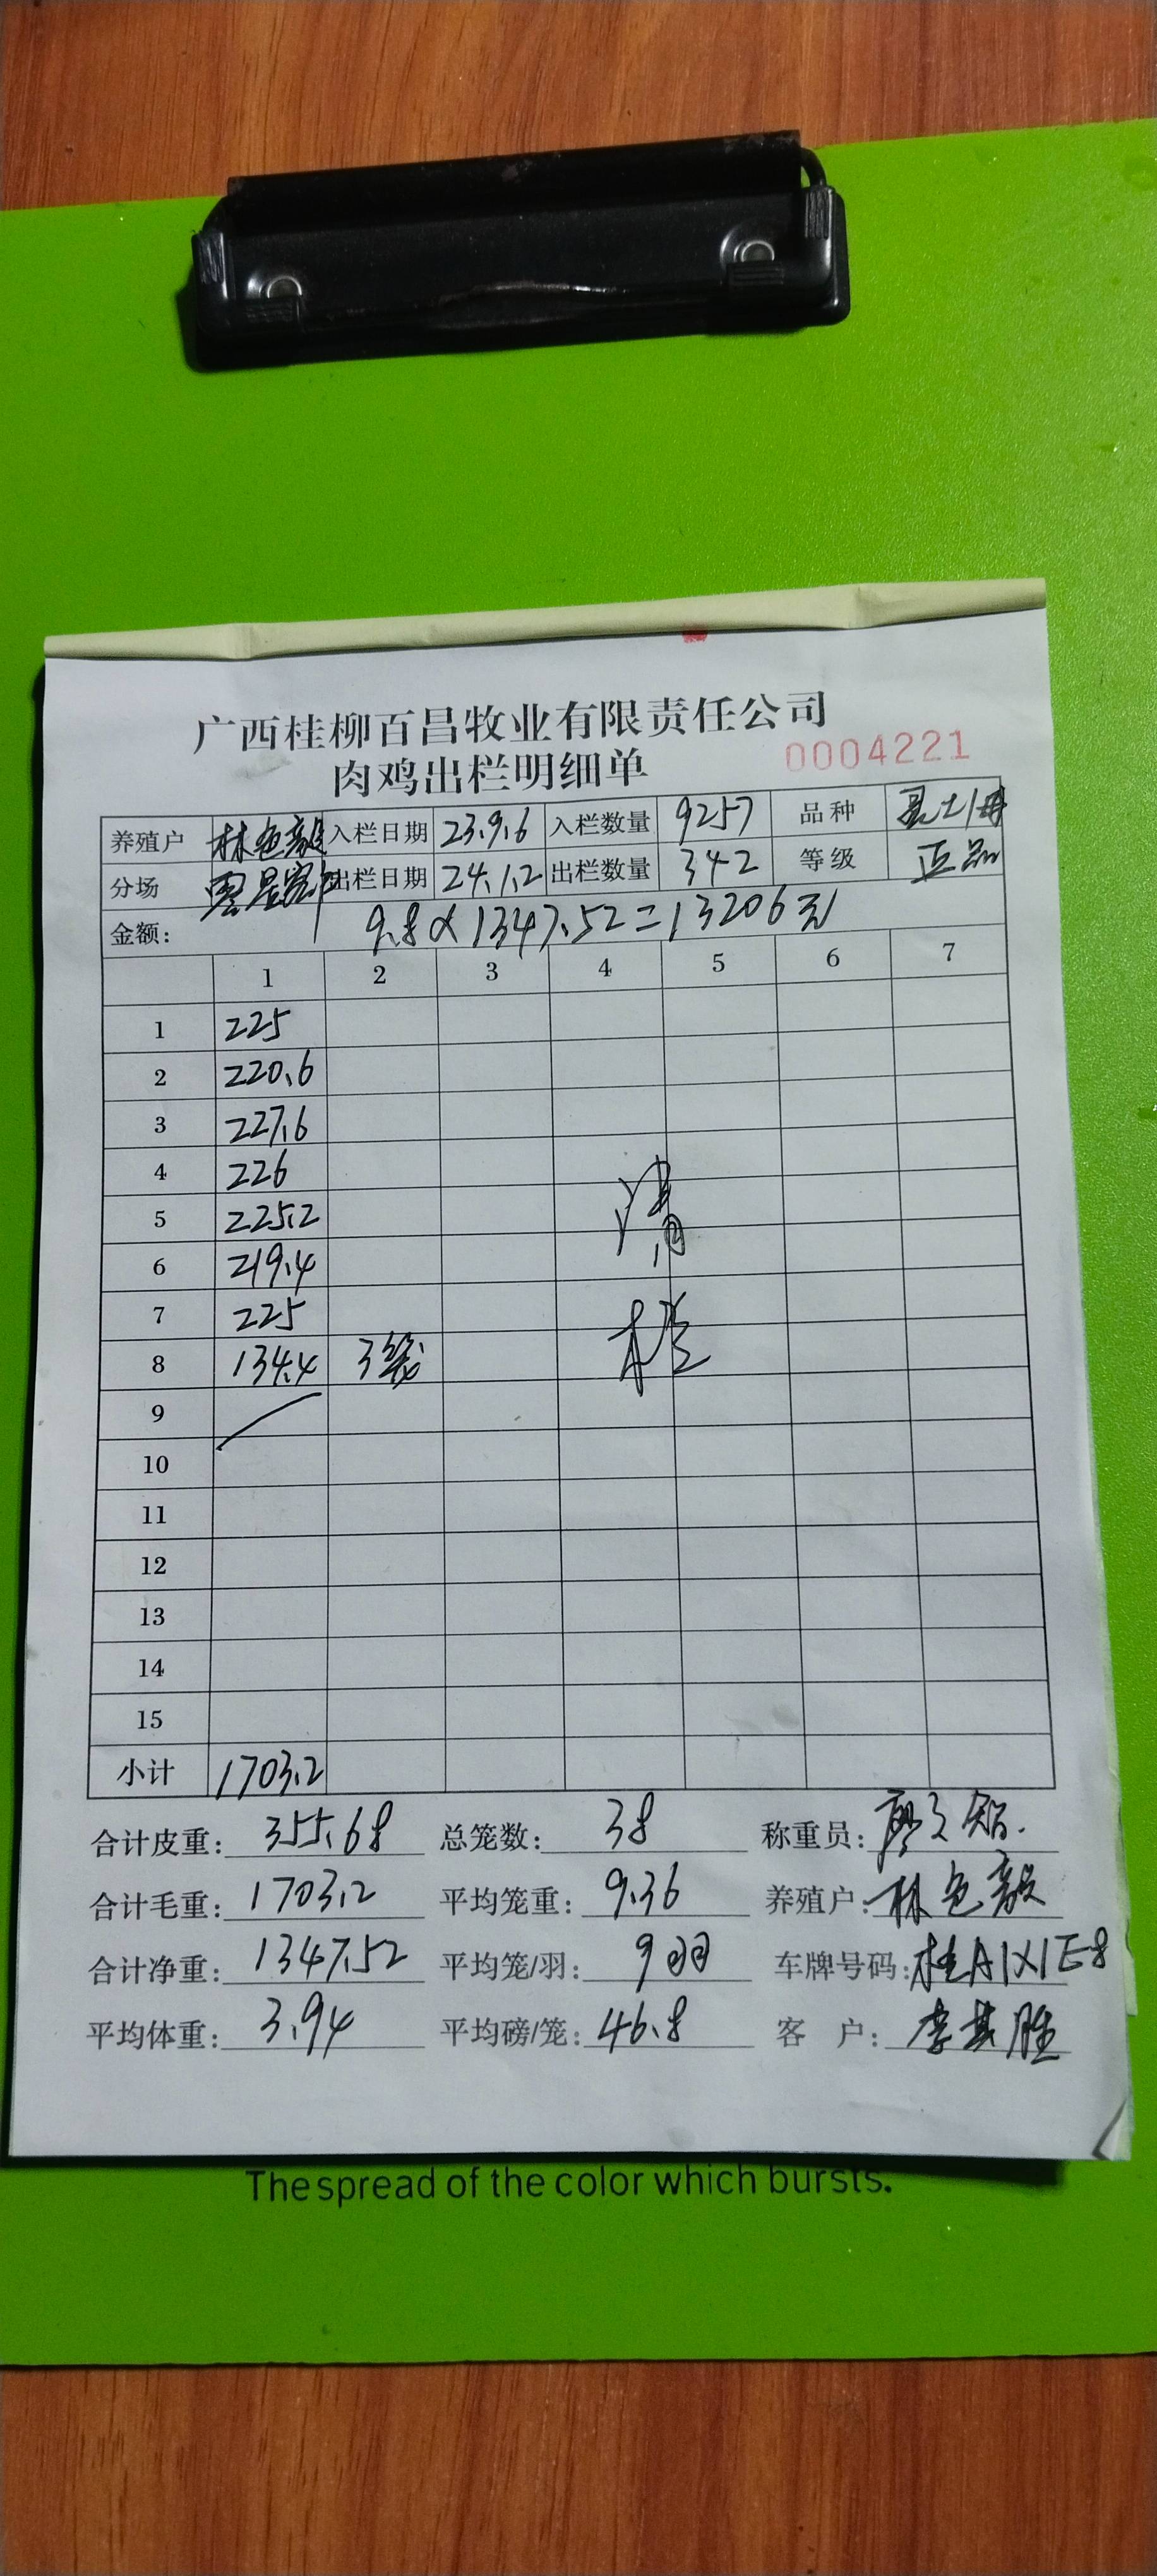 广西桂柳百昌牧业有限责任公司
肉鸡出栏明细单 0004221
养殖户 林 入栏日期 23.9.6 入栏数量 9257 品种
分场 出栏日期 24.1.2 出栏数量 342 等级 正品
金额: 9.8×1347.52=13206元
1 2 3 4 5 6 7
1 225
2 220.6
3 227.6
4 226
5 225.2 清
6 219.4
7 225
8 134.4 3笼 栏
9
10
11
12
13
14
15
小计 1703.2
合计皮重: 355.68 总笼数: 38 称重员: 廖
合计毛重: 1703.2 平均笼重: 9.36 养殖户: 林
合计净重: 1347.52 平均笼/羽: 9羽 车牌号码: 桂A1X1E8
平均体重: 3.94 平均磅/笼: 46.8 客 户: 李其胜
The spread of the color which bursts.